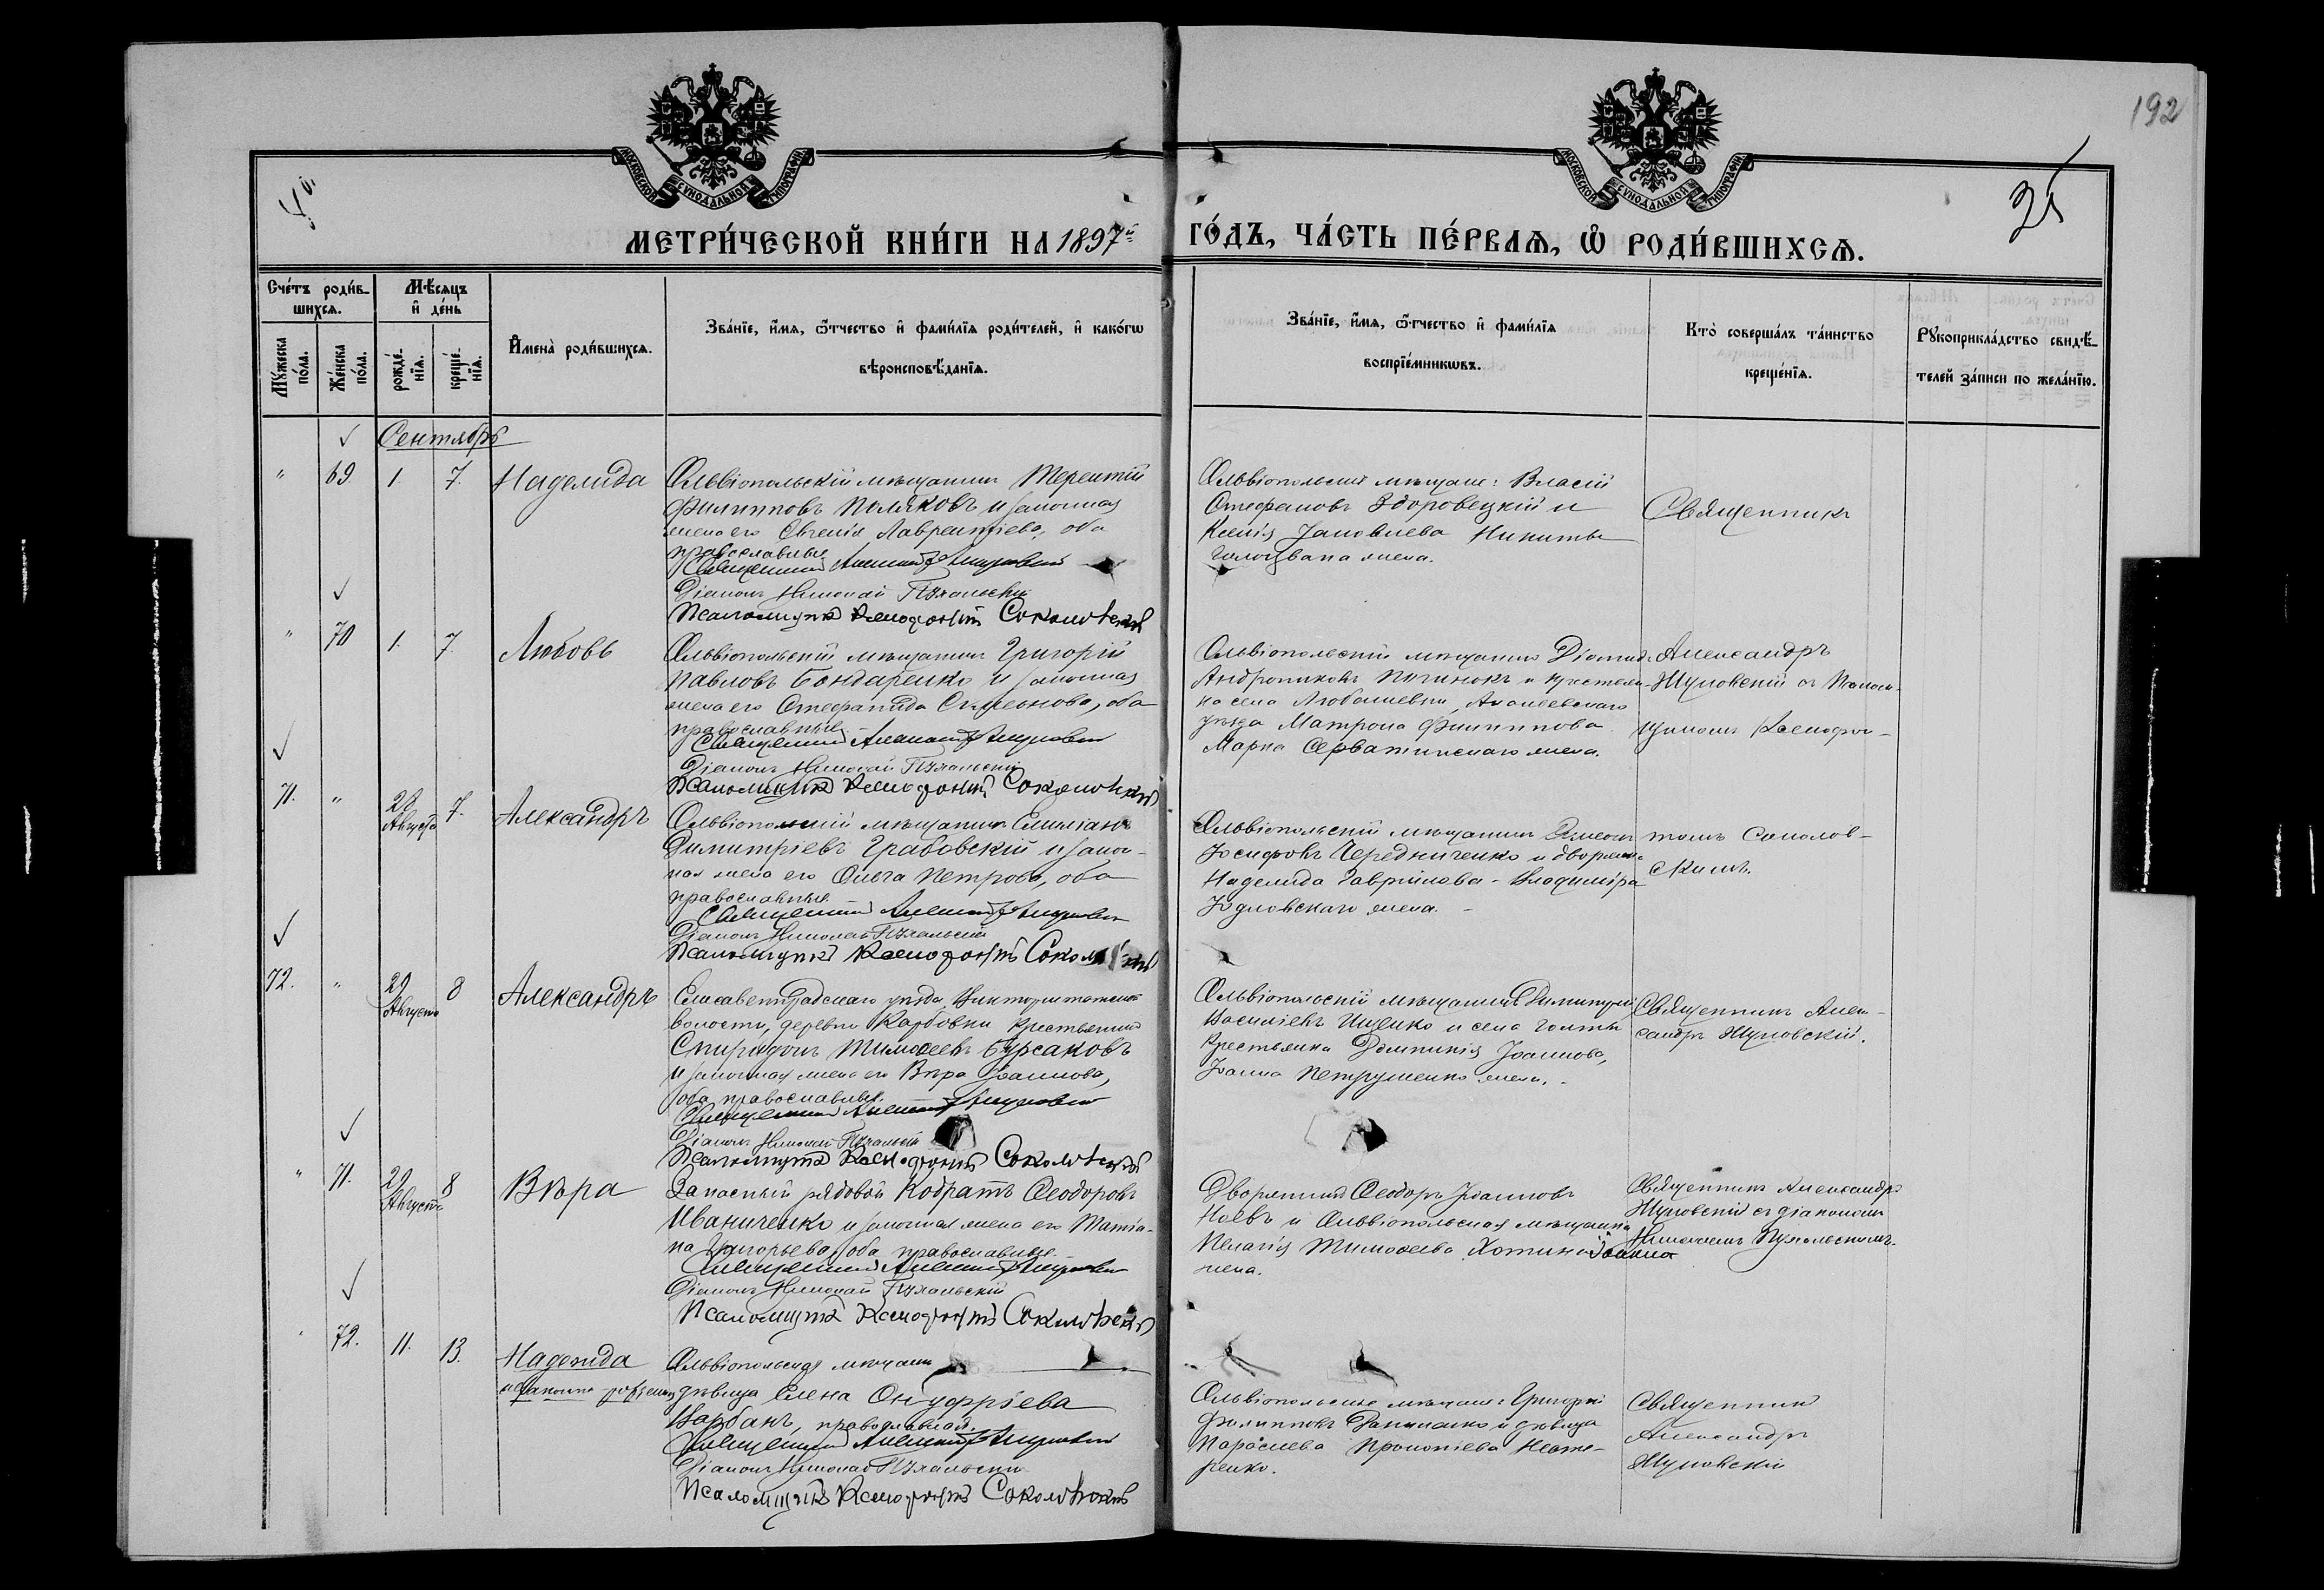 192
35
МОСКОВСКОЙ СУНОДАЛЬНОЙ ТИПОГРАФІИ
МОСКОВСКОЙ СУНОДАЛЬНОЙ ТИПОГРАФІИ
МЕТРИ́ЧЕСКОЙ КНИ́ГИ НА 1897й
ГО́ДЪ, ЧА́СТЬ ПЕ́РВАѦ, Ѡ҆ РОДИ́ВШИХСѦ.
Сче́тъ роди́вшихсѧ.
Мѣ́сѧцъ и҆ де́нь
Мꙋ́жеска по́ла.
Же́нска по́ла.
рожде́нїѧ.
креще́нїѧ.
И҆мена̀ роди́вшихсѧ.
Зва́нїе, и҆́мѧ, ѻ҆́тчество и҆ фами́лїѧ роди́телей, и҆ како́гѡ
вѣроисповѣ́данїѧ.
Зва́нїе, и҆́мѧ, ѻ҆́тчество и҆ фами́лїѧ
воспрїе́мникѡвъ.
Кто̀ соверша́лъ та́инство
креще́нїѧ.
Рꙋкоприкла́дство свидѣ́-
телей за́писи по жела́нїю.
Сентябрь
" 69. 1 7. Надежда
Ольвіопольскій мѣщанинъ Терентій
Филипповъ Поляковъ и законная
жена его Евгенія Лаврентіева, оба
православные
Священникъ Александръ Жуковскій
Діаконъ Николай Пухальскій
Псаломщикъ Ксенофонтъ Соколовскій
Ольвіопольскіе мѣщане: Власій
Стефановъ Здоровецкій и
Ксенія Іаковлева Никиты
жена.
Священникъ
" 70 1. 7. Любовь
Ольвіопольскій мѣщанинъ Григорій
Павловъ Бондаренко и законная
жена его Стефанида, оба
православные
Священникъ Александръ Жуковскій
Діаконъ Николай Пухальскій
Псаломщикъ Ксенофонтъ Соколовскій
Ольвіопольскій мѣщанинъ Діомидъ
Андрониковъ и крестьян-
ка села Любашевки, Ананьевскаго
уѣзда Матрона Филиппова
Марка жена.
Александръ
Жуковскій съ Псалом-
щикомъ Ксенофон-
71. " 28 Августа 7. Александръ
Ольвіопольскій мѣщанинъ Емиліанъ
Димитріевъ Грабовскій и закон-
ная жена его Ольга Петрова, оба
православные
Священникъ Александръ Жуковскій
Діаконъ Николай Пухальскій
Псаломщикъ Ксенофонтъ Соколовскій
Ольвіопольскій мѣщанинъ
Іосифовъ Чередниченко и дворянка
Надежда Гавріилова - Владиміра
жена. -
томъ Соколов-
скимъ.
72. " 29 Августа 8 Александръ
Елисаветградскаго уѣзда,
волости, деревни Карбовки крестьянинъ
Спиридонъ Тимоѳеевъ Бурсаковъ
и законная жена его Вѣра Іоаннова,
оба православные.
Священникъ Александръ Жуковскій
Діаконъ Николай Пухальскій
Псаломщикъ Ксенофонтъ Соколовскій
Ольвіопольскій мѣщанинъ Димитрій
Васильевъ Ищенко и села Голты
крестьянка Домникія Іоаннова,
Іоанна Петрушенко жена. -
Священникъ Алек-
сандръ Жуковскій.
" 71. 29 Августа 8 Вѣра
Запасный рядовой Кодратъ Ѳеодоровъ
Иваниченко и законная жена его Татіа-
на Григорьева, оба православные. -
Священникъ Александръ Жуковскій
Діаконъ Николай Пухальскій
Псаломщикъ Ксенофонтъ Соколовскій
Дворянинъ Ѳеодоръ Іоанновъ
Ноевъ и Ольвіопольская мѣщанка
Пелагія Тимоѳеева
жена.
Священникъ Александръ
Жуковскій съ діакономъ
Николаемъ Пухальскимъ.
72. 11. 13. Надежда
незаконно рожденная
Ольвіопольская мѣщанка
дѣвица Елена Онуфріева
Карбанъ, православная.
Священникъ Александръ Жуковскій
Діаконъ Николай Пухальскій
Псаломщикъ Ксенофонтъ Соколовскій
Ольвіопольскіе мѣщане: Григорій
Филипповъ и дѣвица
Параскева Прокопіева Несте-
ренко.
Священникъ
Александръ
Жуковскій